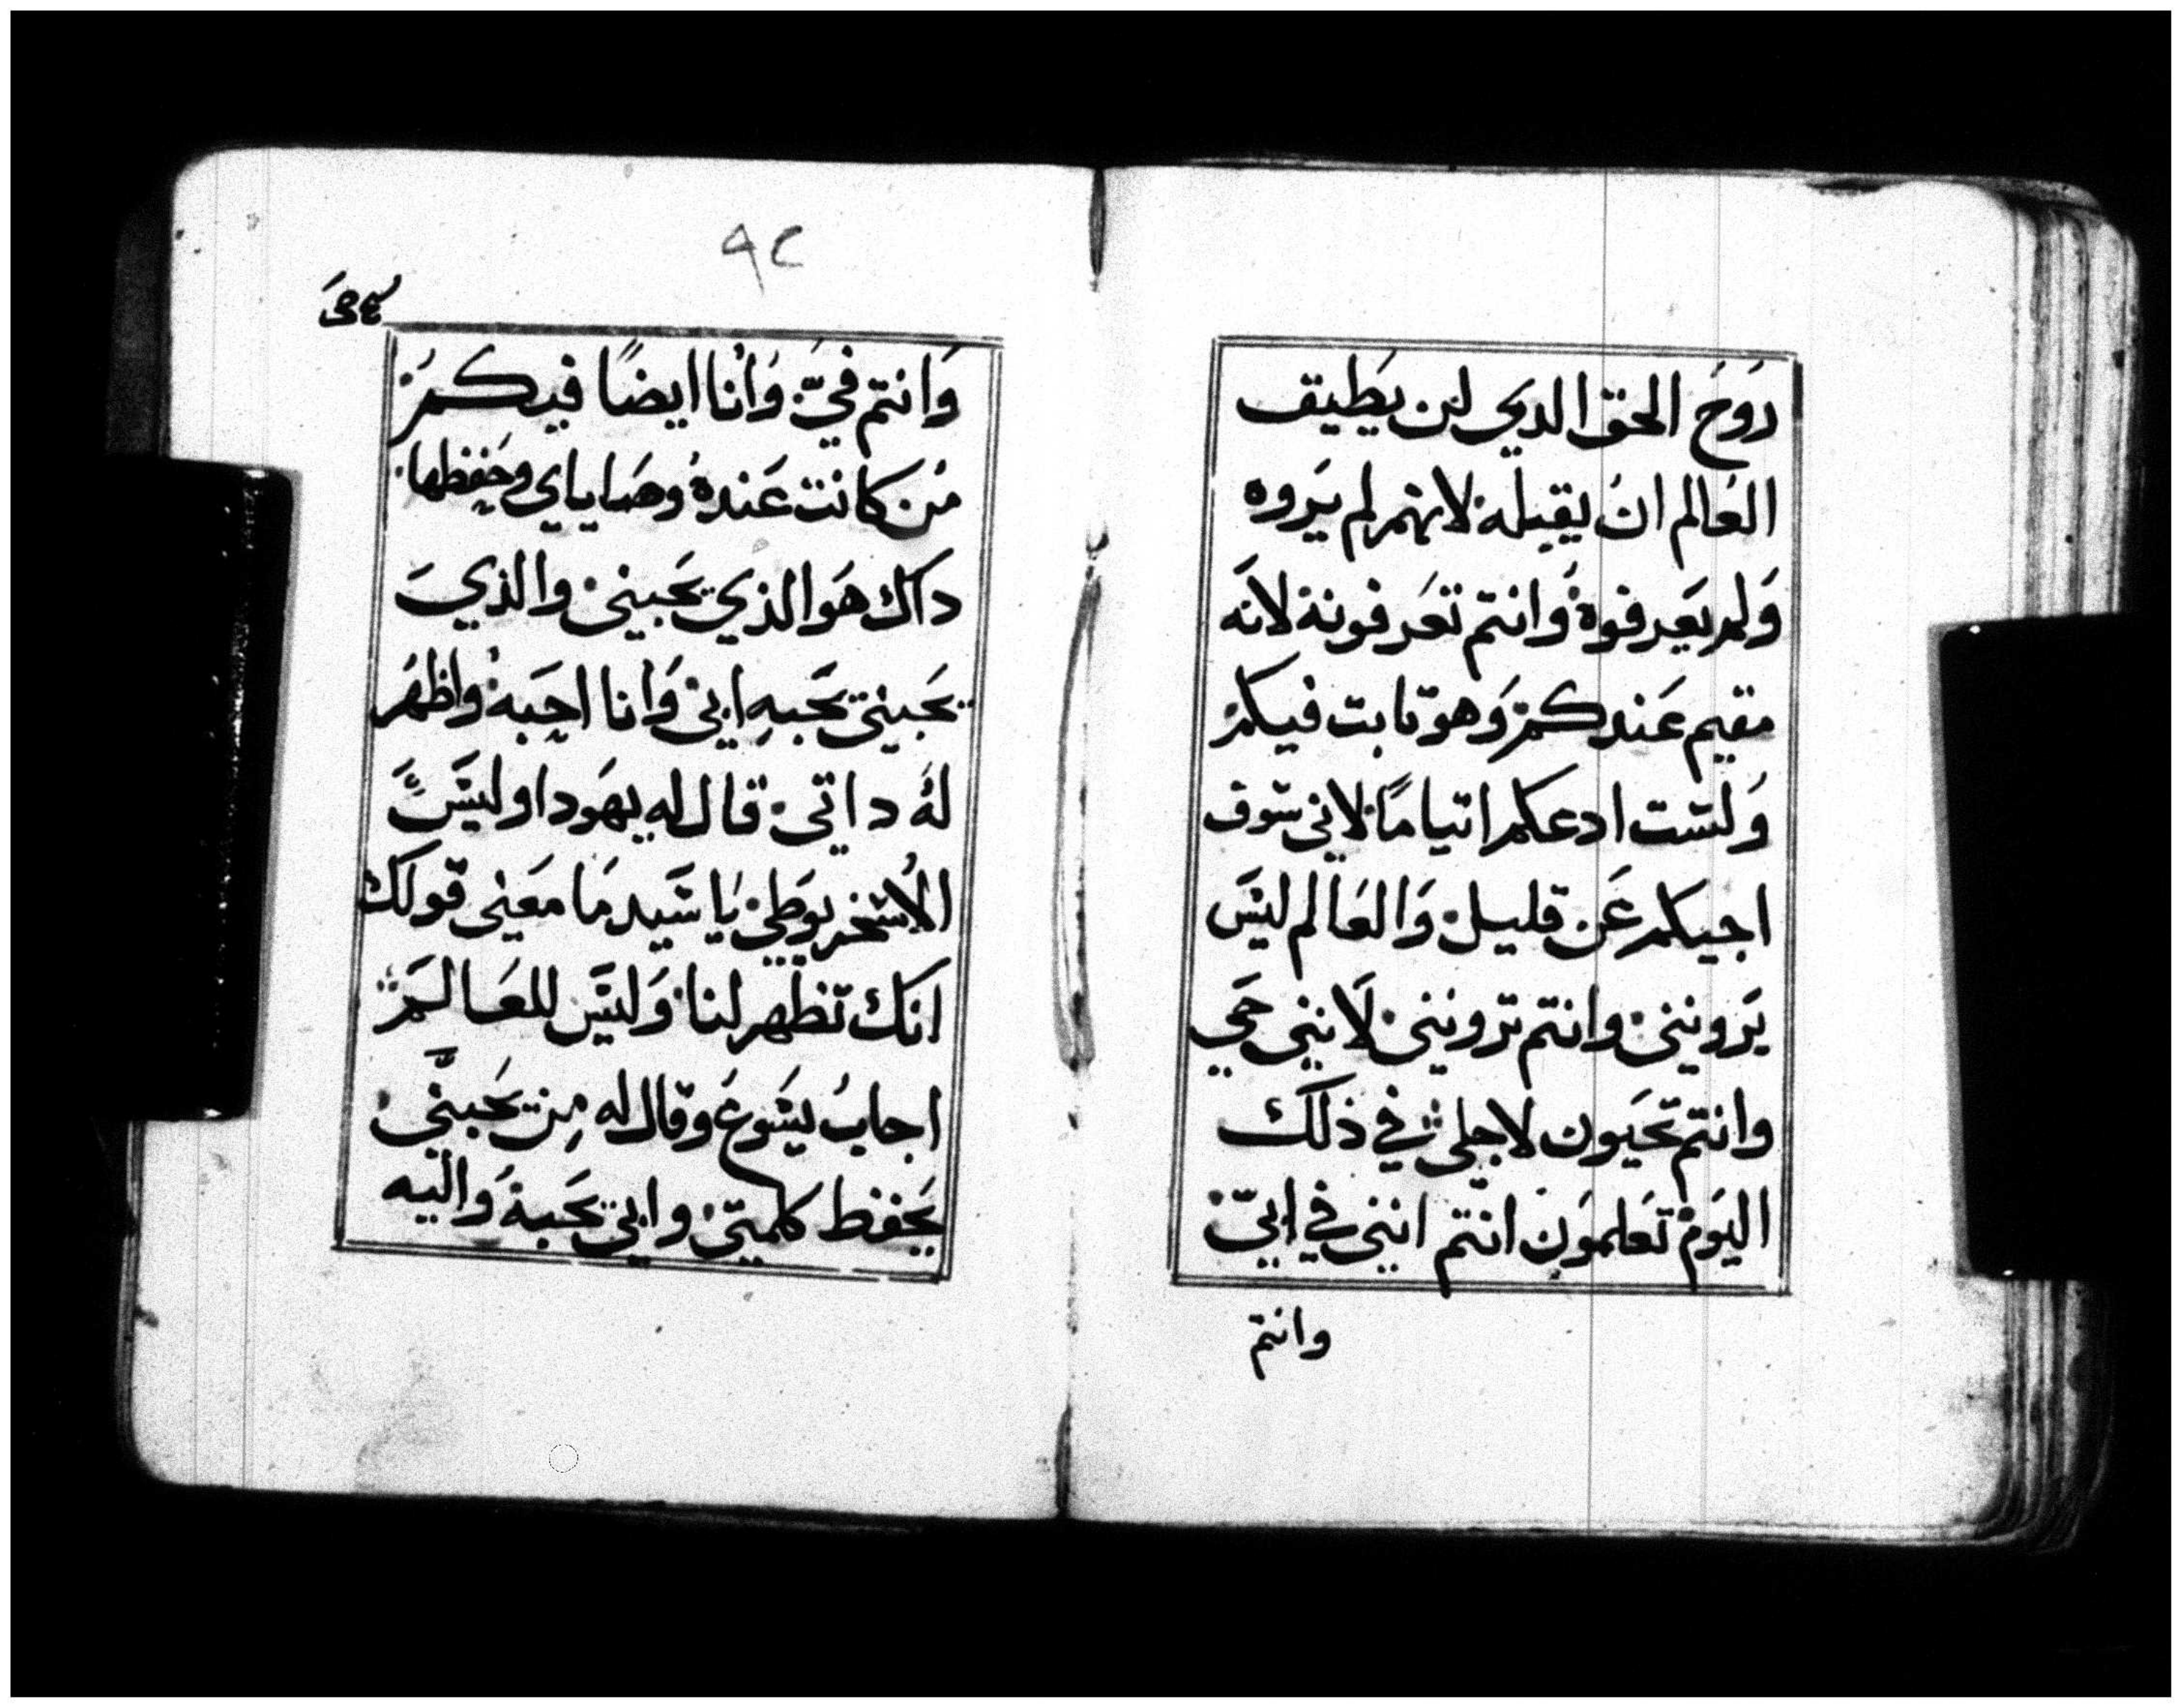 رَوحَ الحق الدي لن يطيق
العَالم انُ يقبله لانهم لم يَروه
وَلم يَعرفوهُ وَانتم تعَرفونهٔ لانَه
مقيم عَندكم وَهو تابت فيكم
وَلسَت ادعكم ايتامًا لاني سَوف
اجيكم عَن قليل وَالعَالم ليسَ
يَرونني وانتم ترونني لَانني حَي
وانتم تحَيون لاجلي في ذلكَ
اليَوم تعَلموَن انتم انني في ابيّ
وانتم
٩٢
وَانتم فيَّ وَأنا ايضًا فيكم
مَن كانت عَندهُ وصَاياي وحَفظها
داكَ هَو الذي يحَبني والذي
يحَبني يحَبهِ ابي وَانا احِبهُ واظهَر
لهُ داتي قال له يهَودا وليسَ
الاسَخريوطي يَا سَيد مَا معَنى قولكَ
انكَ تظهر لنا وَليسَ للعَالم
اجابُ يسَوعَ وقال له مِن يحَبنّي
يحَفظ كلمتي وابي يحَبهُ وَاليه